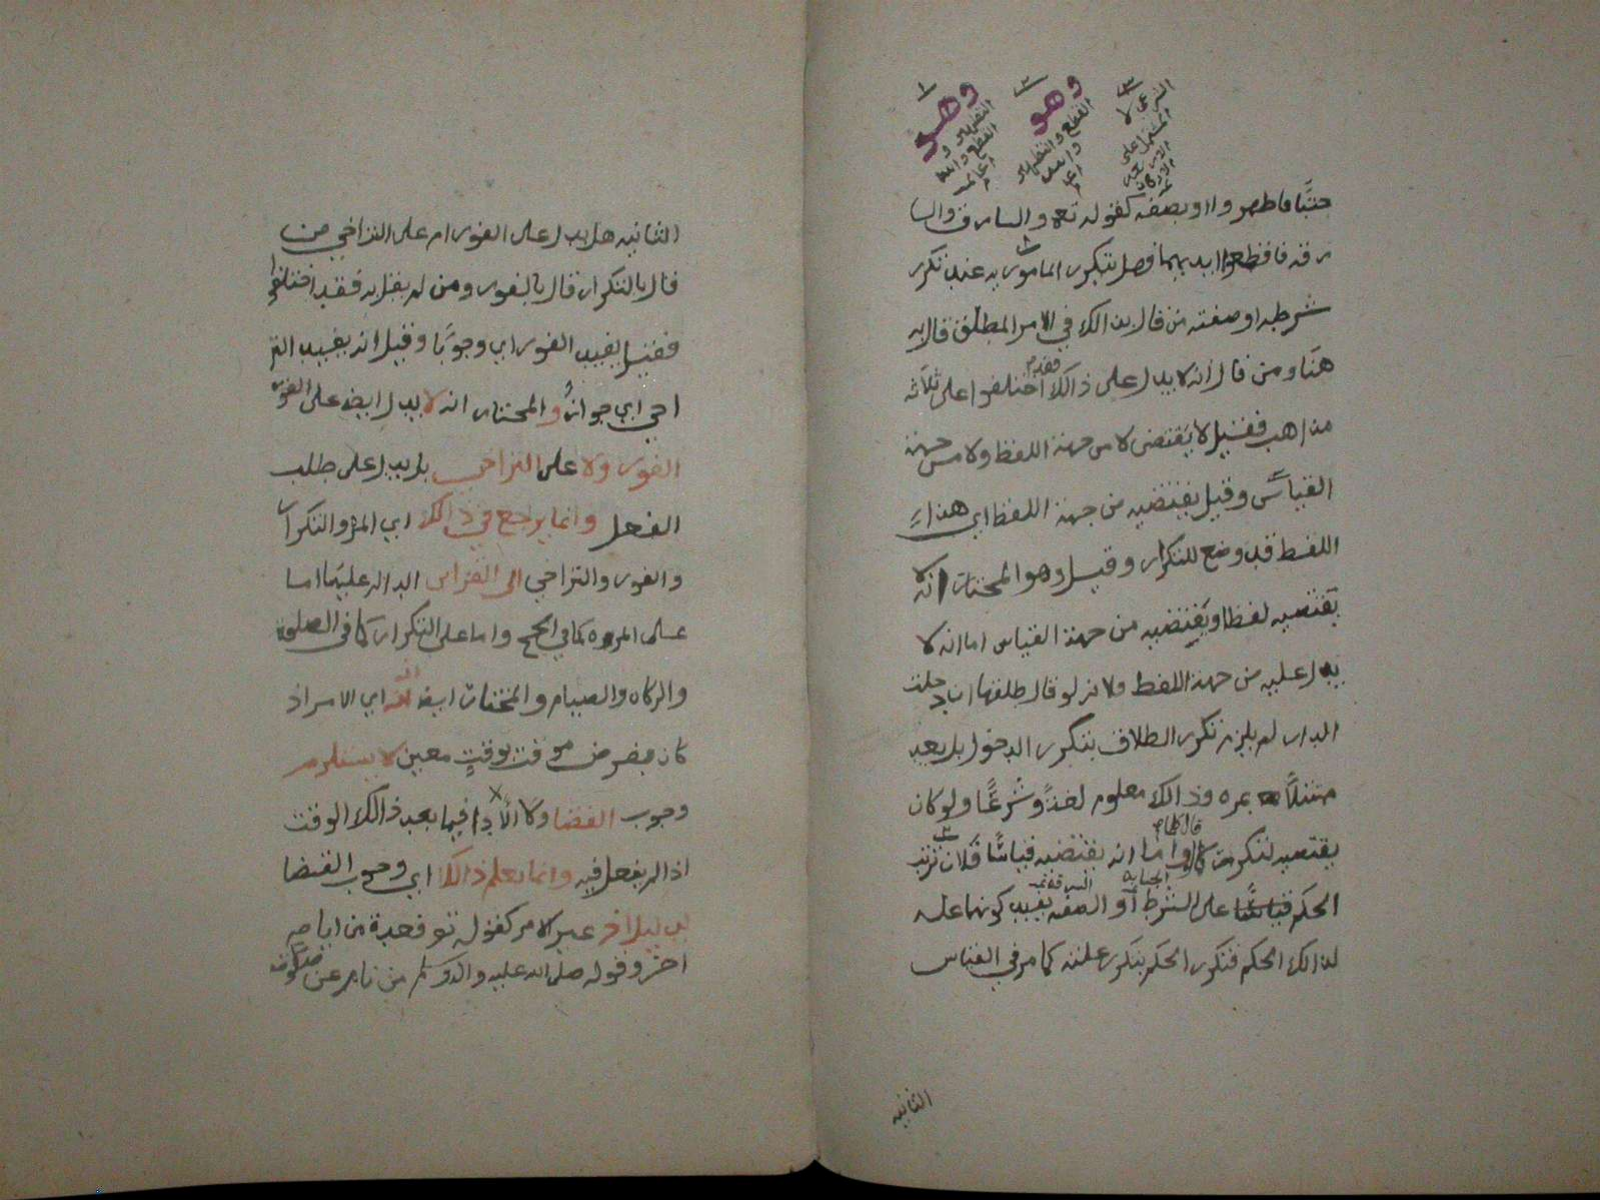 وهو
القطع والتطهير
وهو
القطع والتطهير
الشرعي لا
المشتمل على
جنبا فاطهروا او بصفه كقوله تع والسارق والسا
رقه فاقطعوا ايديهما فهل يتكرر المامور به عند تكرر
شرطه او صفته من قال بذالك في الامر المطلق قال به
هنا ومن قال انه لا يدل على ذالك فقد اختلفوا على ثلاثه
مذاهب فقيل لا يقتضى لا من جهة اللفظ ولا من جهة
القياس وقيل يقتضيه من جهة اللفظ اي هذا
اللفظ قد وضع للتكرار وقيل وهو المختار انه لا
يقتضيه لفظا ويقتضيه من جهة القياس اما انه لا
يدل عليه من جهة اللفظ فلانه لو قال طلقها ان دخلت
الدار لم يلزم تكرر الطلاق بتكرر الدخول بل يعد
متثلا بمره وذالك معلوم لغة وشرعا ولو كان
يقتضيه لتكرر واما انه يقتضيه قياسا فلان ترتب
الحكم على الشرط او الصفه يفيد كونهما عله
لذالك الحكم فتكرر الحكم بتكرر علته كما مر في القياس
الثانيه
الثانيه هل يدل على الفور ام على التراخي من
قال بالتكرار قال بالفور ومن لم يقل به فقد اختلفوا
فقيل يفيد الفور اي وجوبا وقيل انه يفيد الترا
اخي اي جوازا والمختار انه لا يدل ايضا على الفور
الفور ولا على التراخي بل يدل على طلب
الفعل وانما يراجع في ذالك اي المره والتكرار
والفور والتراخي الى القراين الداله عليها اما
على المره كما في الحج واما على التكرار كما في الصلوة
والزكاه والصيام والمختار ايضا انه اي الامر اذا
كان بفرض موقت بوقت معين لا يستلزم
وجوب القضا وكالادا فيما بعد ذالك الوقت
اذا لم يفعل فيه وانما يعلم ذالك اي وجوب القضا
بدليل اخر غير الامر كقوله تع فعدة من ايام
اخر وقوله صلى الله عليه واله وسلم من نام عن صلوته